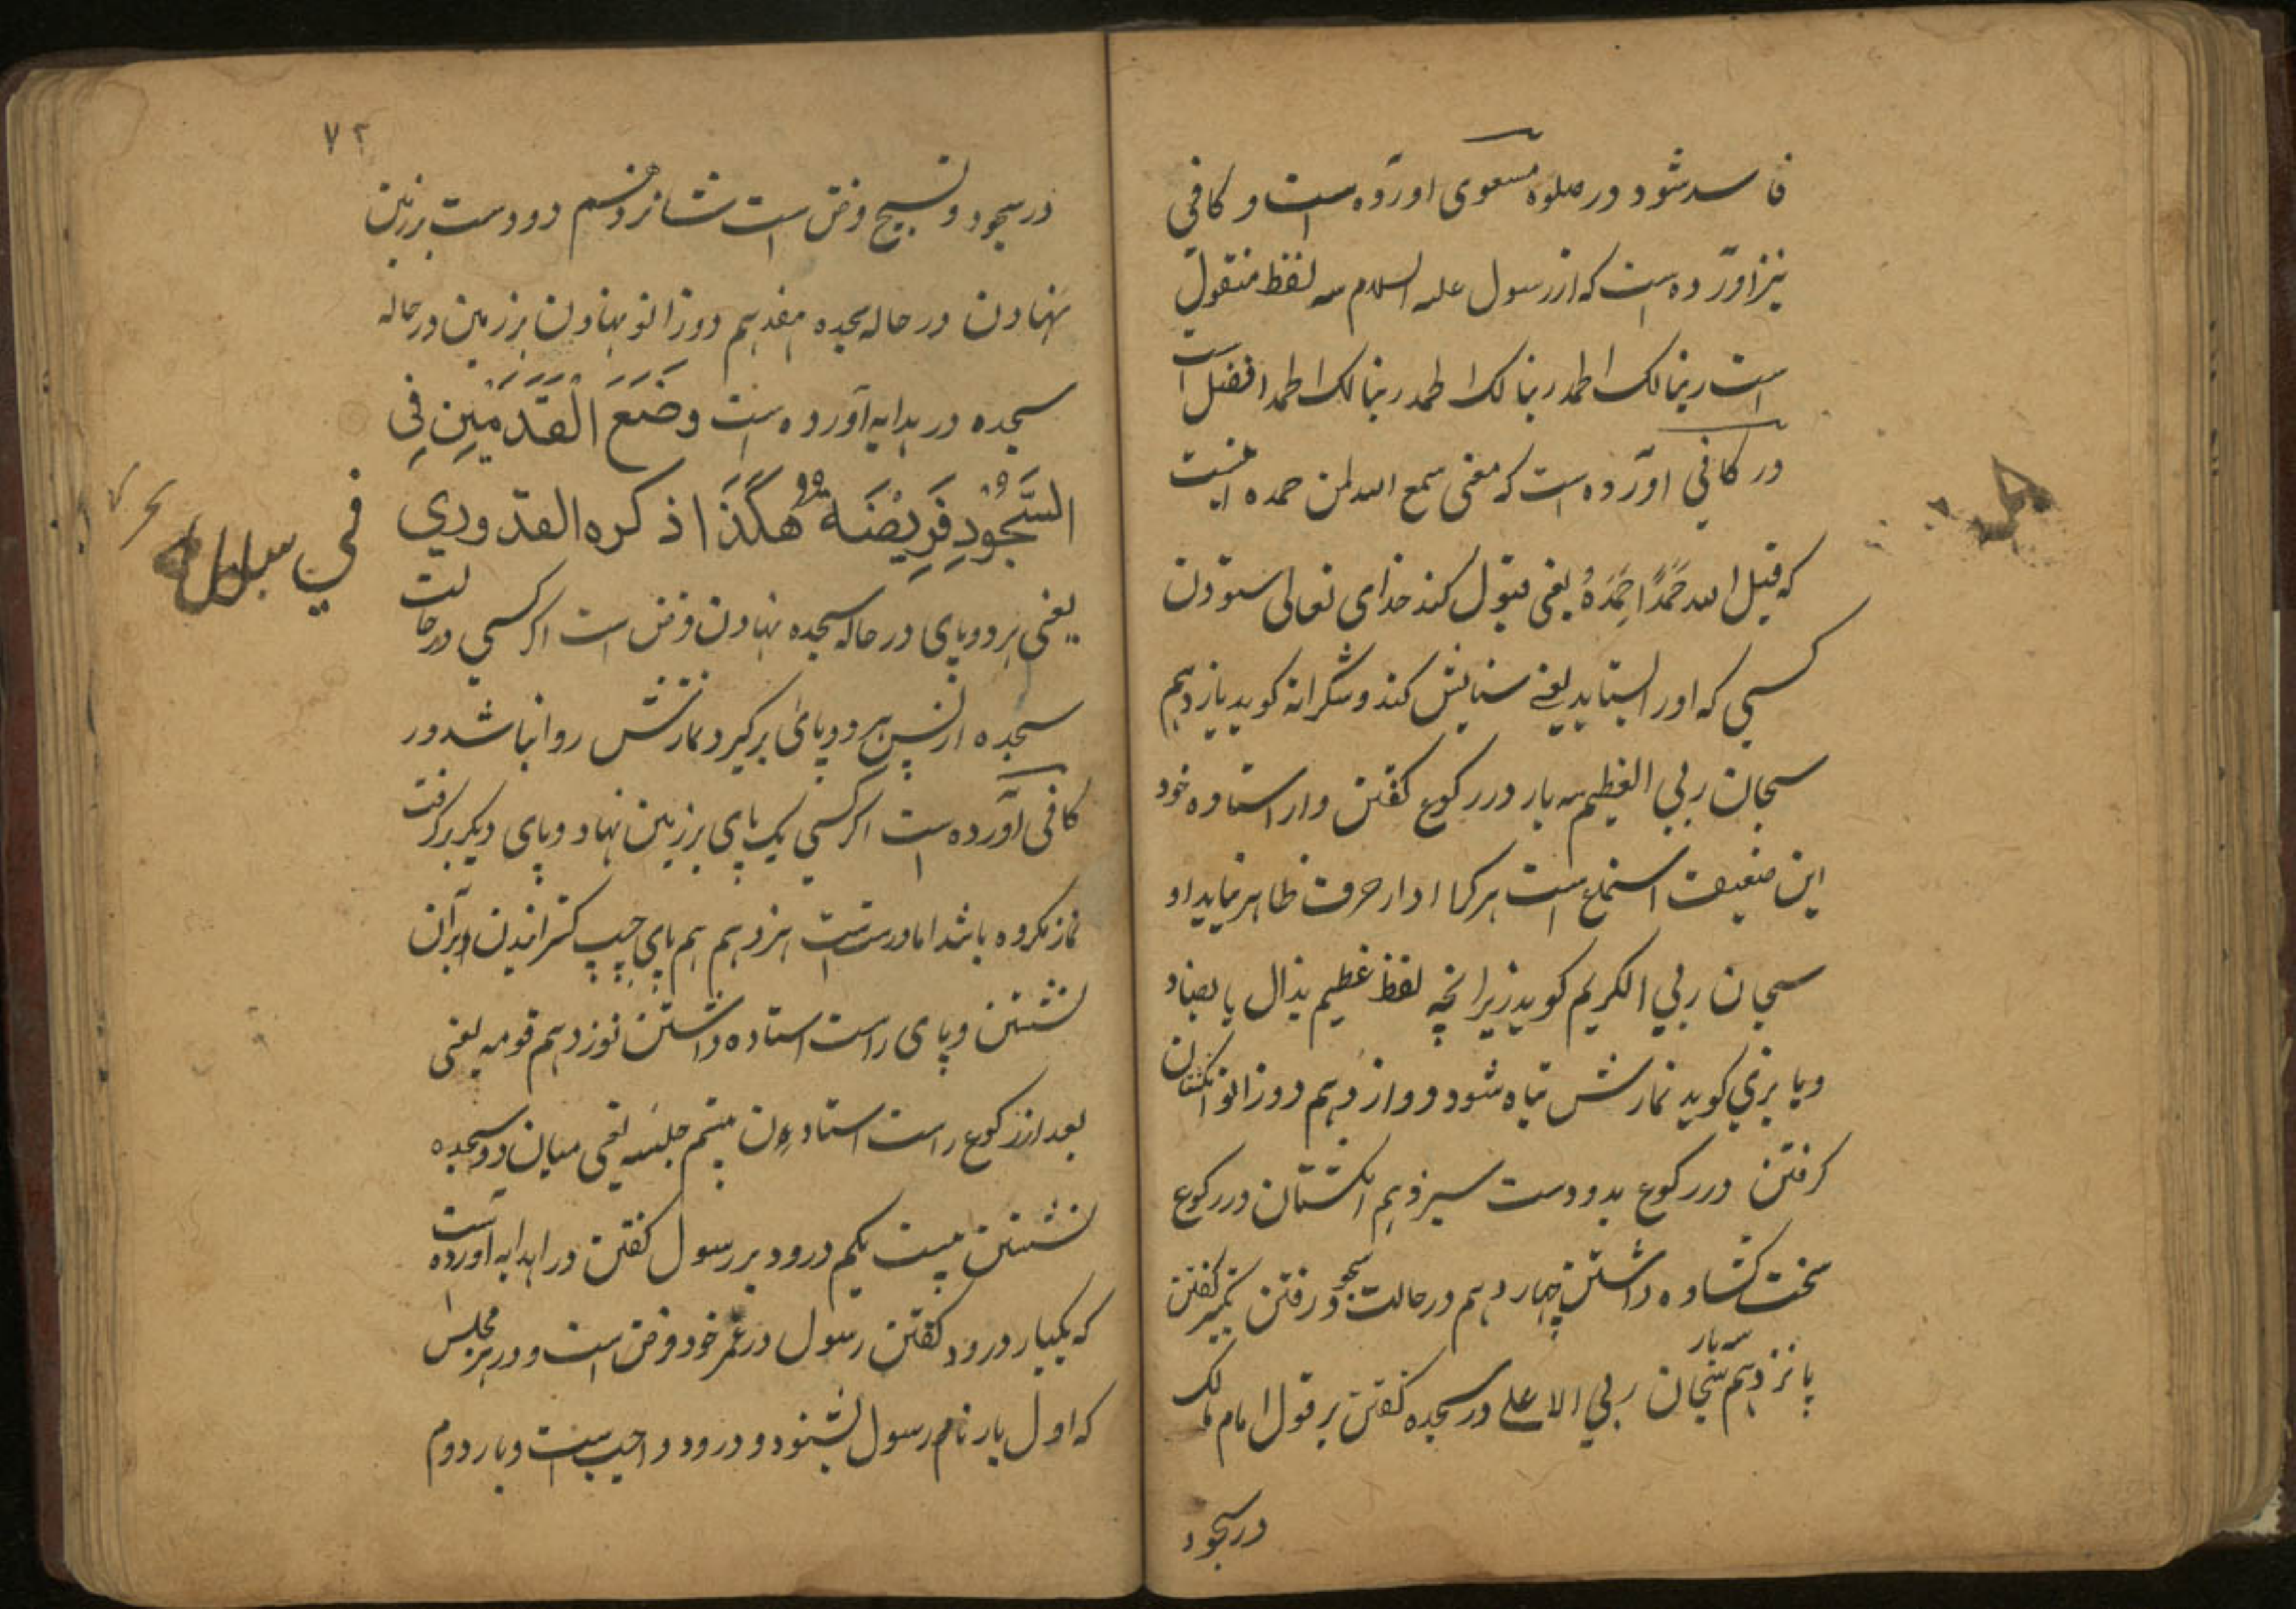 فاسد شود در صلوة مسعودی اورده است و کافی
نیز اورده است که از رسول علیه السلام سه لفظ منقول
است ربنا لک الحمد ربنا لک الحمد ربنا لک الحمد افضل است
در کافی اورده است که معنی سمع الله لمن حمده اینست
که قبل الله حَمْدًا حَمِدَهُ یعنی قبول کند خدای تعالی ستودن
کسی که اورا بستاید یعنی ستایش کند و شکرانه کوید یازدهم
سبحان ربی العظیم سه بار در رکوع کفتن و ار استاده خود
این ضعیف است هر کرا ادا حرف ظا هر نیاید او
سبحان ربی الکریم کوید زیرا نچه لفظ عظیم بذال یا بضاد
ویا بزی کوید نمازش تباه شود دوازدهم دو زانو انکشتان
کرفتن در رکوع بدو دست سیزدهم انکشتان در رکوع
سخت کشاده داشتن چهاردهم در حالت سجود رفتن تکبیر کفتن
پانزدهم سه بار سبحان ربی الاعلی در سجده کفتن بر قول امام مالک
در سجود
۷۲
در سجود و تسبیح فرض است شانزدهم دو دست بر زمین
نهادن در حاله سجده هفدهم دو زانو نهادن بر زمین در حاله
سجده در هدایه آورده است وَضَعَ الْقَدَمَیْنِ فِی
السُّجُودِ فَرِیْضَةٌ هٰکَذَا ذکره القدوری
یعنی هر دو پای در حاله سجده نهادن فرض است اکر کسی در حالت
سجده از پس هر دو پای برکیرد نمازش روا نباشد در
کافی آورده است اکر کسی یک پای بر زمین نهاد و پای دیکر برکرفت
نماز مکروه باشد اما درست است هزدهم هم پای چپ کسترانیدن و برآن
نشستن و پای راست استاده داشتن نوزدهم قومه یعنی
بعد از رکوع راست استاده‌ن بیستم جلسه یعنی میان دو سجده
نشستن بیست یکم درود بر رسول کفتن در اهدایه آورده است
که یکبار درود کفتن رسول در عمر خود فرض است و در هر مجلس
که اول بار نام رسول بشنود و درود واجب است و بار دوم
فی